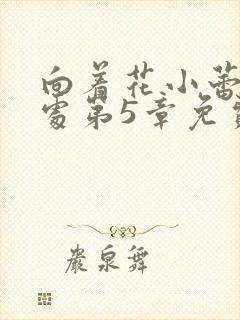 向着花小蕾
处第5章免费
严泉舞